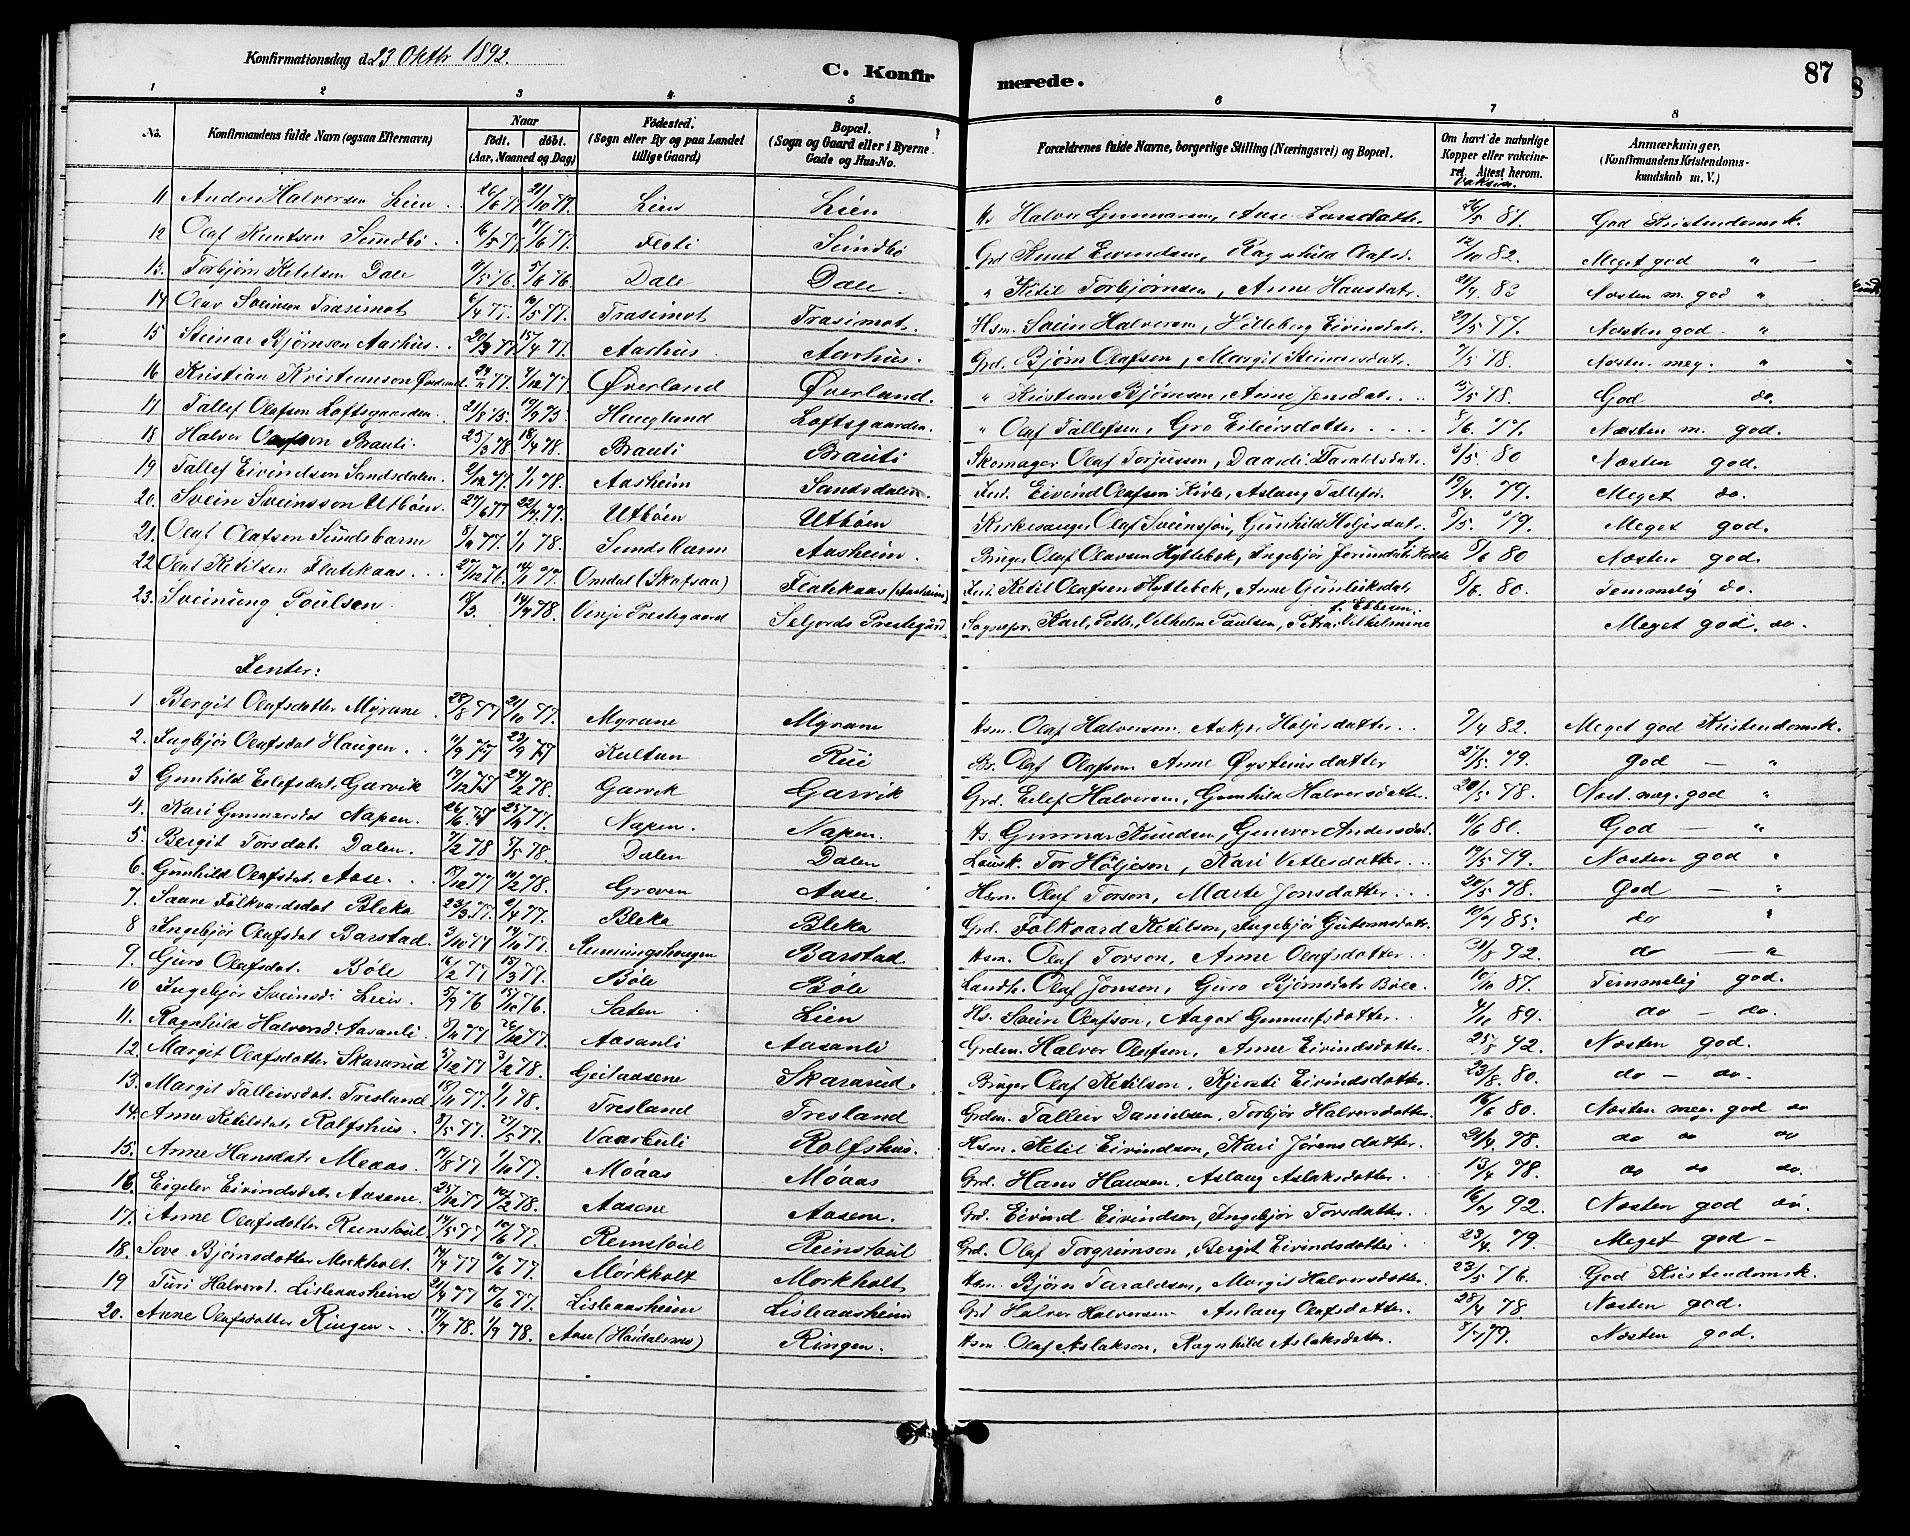 Konfirmationsdag d. 23 Oktbr 1892.
C. Konfirmerede.
87
1 2 3 4 5 6 7 8
No. Konfirmandens fulde Navn (ogsaa Efternavn) Naar født. døbt. (Aar, Maaned og Dag) Fødested. (Sogn eller By og paa Landet tillige Gaard) Bopæl. (Sogn og Gaard eller i Byerne Gade og Hus-No. Forældrenes fulde Navne, borgerlige Stilling (Næringsvei) og Bopæl. Om havt de naturlige Kopper eller vakcineret. Attest herom. Anmærkninger. (Konfirmandens Kristendomskundskab m. V.)
Vaksin.
11 Andres Halversen Lien 26/6 77 21/10 77. Lien Lien Hs Halver Gunnarsen, Aase Larsdatter 26/5 81. God Kristendomsk.
12 Olaf Knutsen Sundbø 6/5 77. 17/6 77. Flati Sundbø Grd. Knut Eivindsen, Ragnhild Olafsd. 12/10 82. Meget god "
13. Torbjørn Ketilsen Dale 9/5 76. 5/6 76 Dale Dale " Ketil Torbjørnsen, Anne Hansdatr. 21/9 83 Næsten m. god "
14 Olav Sveinson Trasimot 6/4 77. 10/5 77. Trasimot Trasimot. Hsm. Svein Halversen, Hølleberg Eivinsdatr. 29/5 77. Næsten god. "
15 Steinar Bjørnson Aarhus. 20/3 77. 15/4 77. Aarhus. Aarhus. Grd. Bjørn Olafsen, Margit Steinarsdatr. 7/5 78. Næsten meg. "
16 Kristian Kristianson Øverland. 24/11 77. 9/12 77 Øverland Øverland. " Kristian Bjørnson, Anne Jensdatr. 15/5 78. God do.
17 Tallef Olafsen Loftsgaarden. 21/8 75. 19/9 75. Haugland Loftsgaarden. " Olaf Tallefsen, Gro Eileivsdatter 8/6. 77. Næsten m. god.
18 Halver Olafson Brauti. 25/3 78. 18/4 78. Brauti Brauti Skomager Olaf Torjussen, Daardi Taraldsdatr. 3/5. 80 Næsten god.
19 Tallef Eivindson Sandsdalen. 2/12 77. 1/1 78. Aasheim Sandsdalen Ind. Eivind Olafsen Kirle, Aslaug Tallefsd. 19/4. 79. Meget do.
20. Svein Sveinsson Utbøen. 27/6 77 22/7. 77. Utbøen Utbøen Kirkesanger Olaf Sveinsson, Gunhild Høljesdatr. 8/5. 79. Meget god.
21. Olaf Olafsen Sundsbarm 8/11 77. 1/1 78. Sundsbarm Aasheim. Bruger Olaf Olavsen Hyttebek, Ingebjør Jørunds 8/6 80 Næsten god.
22 Olaf Ketilsen Flatekaas 27/12 76. 14/1 77. Omdal (Skafsaa) Flatekaas (Aasheim) Ind. Ketil Olafsen Hyttebek, Anne Gunleiksdatr. 8/6. 80. Temmelig do.
23. Sveinung Poulsen 18/3. 14/4 78. Vinje Prestegaard Seljords Prestegård Sognepr. Karl Petter Vilhelm Paulsen, Petra Vilhelmine f. Ebbesen. Meget god. do.
Jenter:
1 Bergit Olafsdatter Myrane 28/8 77 21/10 77. Myrane Myrane Hsm. Olaf Halversen Høljesdatter 7/4 82. Meget god Kristendomsk.
2. Ingebjør Olafsdat. Haugen. 11/9 77 23/9 77 Kultan Rui Hs. Olaf Olafson Anne Øysteinsdatter 27/5. 79. god — "
3 Gunhild Eilefsdat. Garvik 19/12 77 24/2 78. Garvik Garvik Grd. Eilef Halversen, Gunhild Halversdatter. 20/5 78. Næst. meg. god "
4. Kari Gunnarsdat Napen. 26/6. 77 25/7 77. Napen. Napen. Hs. Gunnar Knudsen, Gunever Andersdat. 11/6 80. God — "
5 Bergit Torsdat. Dalen. 7/2 78 5/5 78. Dalen Dalen Løssk. Tor Høljeson, Kari Vetlesdatter 19/5 79. Næsten god "
6. Gunhild Olafsdat. Aase. 17/12 77 10/2 78. Groven Aase. Hsm. Olaf Torson, Marte Jonsdatter 20/5 78. God — "
7. Saave Folkvardsdat Bleka 23/3 77. 2/4 77. Bleka Bleka Grd. Folkvard Ketilson, Ingebjør Gutormsdatr. 10/7 85. do "
8 Ingebjør Olafsdat Barstad. 3/10 77 14/10 77. Barstad. Hsm. Olaf Torson, Anne Olafsdatter 31/8 92. do — "
9. Guro Olafsdat. Bøle 16/2 77 18/3 77. Bøle Bøle Landh. Olaf Jonsen, Guro Bjørnsdatr Bøle. 10/10 87. Temmelig god.
10 Ingebjør Sveinsd. Lien. 5/9 76 15/10 76. Saten Lien Hs. Svein Olafson, Aagot Gunnufsdatter 4/11 89. do — do.
11. Ragnhild Halversd. Aasanli 9/11 77 26/12 77. Aasanli Aasanli Grdm. Halver Olafson, Anne Eivindsdatter. 25/8 92. Næsten god.
12. Margit Olafsdatter Skararud 5/12 77 3/2 78. Geitaasene Skararud. Bruger Olaf Ketilson, Kjersti Eivindsdattr 23/8. 80. do — do.
13. Margit Talleivsdat. Tresland 18/11 77. 1/1 78. Tresland Tresland Grdm. Talleiv Danielsen, Torbjør Halversdatter. 16/6 80. Næsten meg. god do
14. Anne Ketilsdat. Rolfshus. 8/5 77. 27/5 77. Vaarbuli Rolfshus. Hsm. Ketil Eivindson, Kari Jørensdatter. 21/4. 78. do do do
15. Anne Hansdat. Meaas. 19/8 77 7/10 77. Møaas Møaas Grd. Hans Hansen, Aslaug Aslaksdatter. 13/4 78. do do do.
16. Eigelev Eivindsdat. Aasene. 25/12 77 10/2 78. Aasene Aasene. Grd. Eivind Eivindsen, Ingebjør Torsdatter. 16/7 92. Næsten god do.
17. Anne Olafsdatter Reinstøul 14/5 77 10/6 77. Reinstøul Reinstøul Grd. Olaf Torgrimson, Bergit Eivindsdatter 23/4. 79. Meget god —
18. Sove Bjørnsdatter Mørkholt. 14/4 77 10/6 77. Mørkholt Mørkholt Hsm. Bjørn Taraldsen, Margit Halversdatter. 23/5 76. God Kristendomsk.
19 Turi Halversd. Lisleaasheim 21/4 77 10/6 77. Lisleaasheim Lisleaasheim Grd Halver Halversen Aslaug Olafsdatter. 28/4 78. Næsten god.
20. Anne Olafsdatter Ringen 17/7 78. 1/9 78. Aase (Høidalsmo) Ringen. Hsm. Olaf Aslakson, Ragnhild Aslaksdatter. 8/7 79. Næsten god.